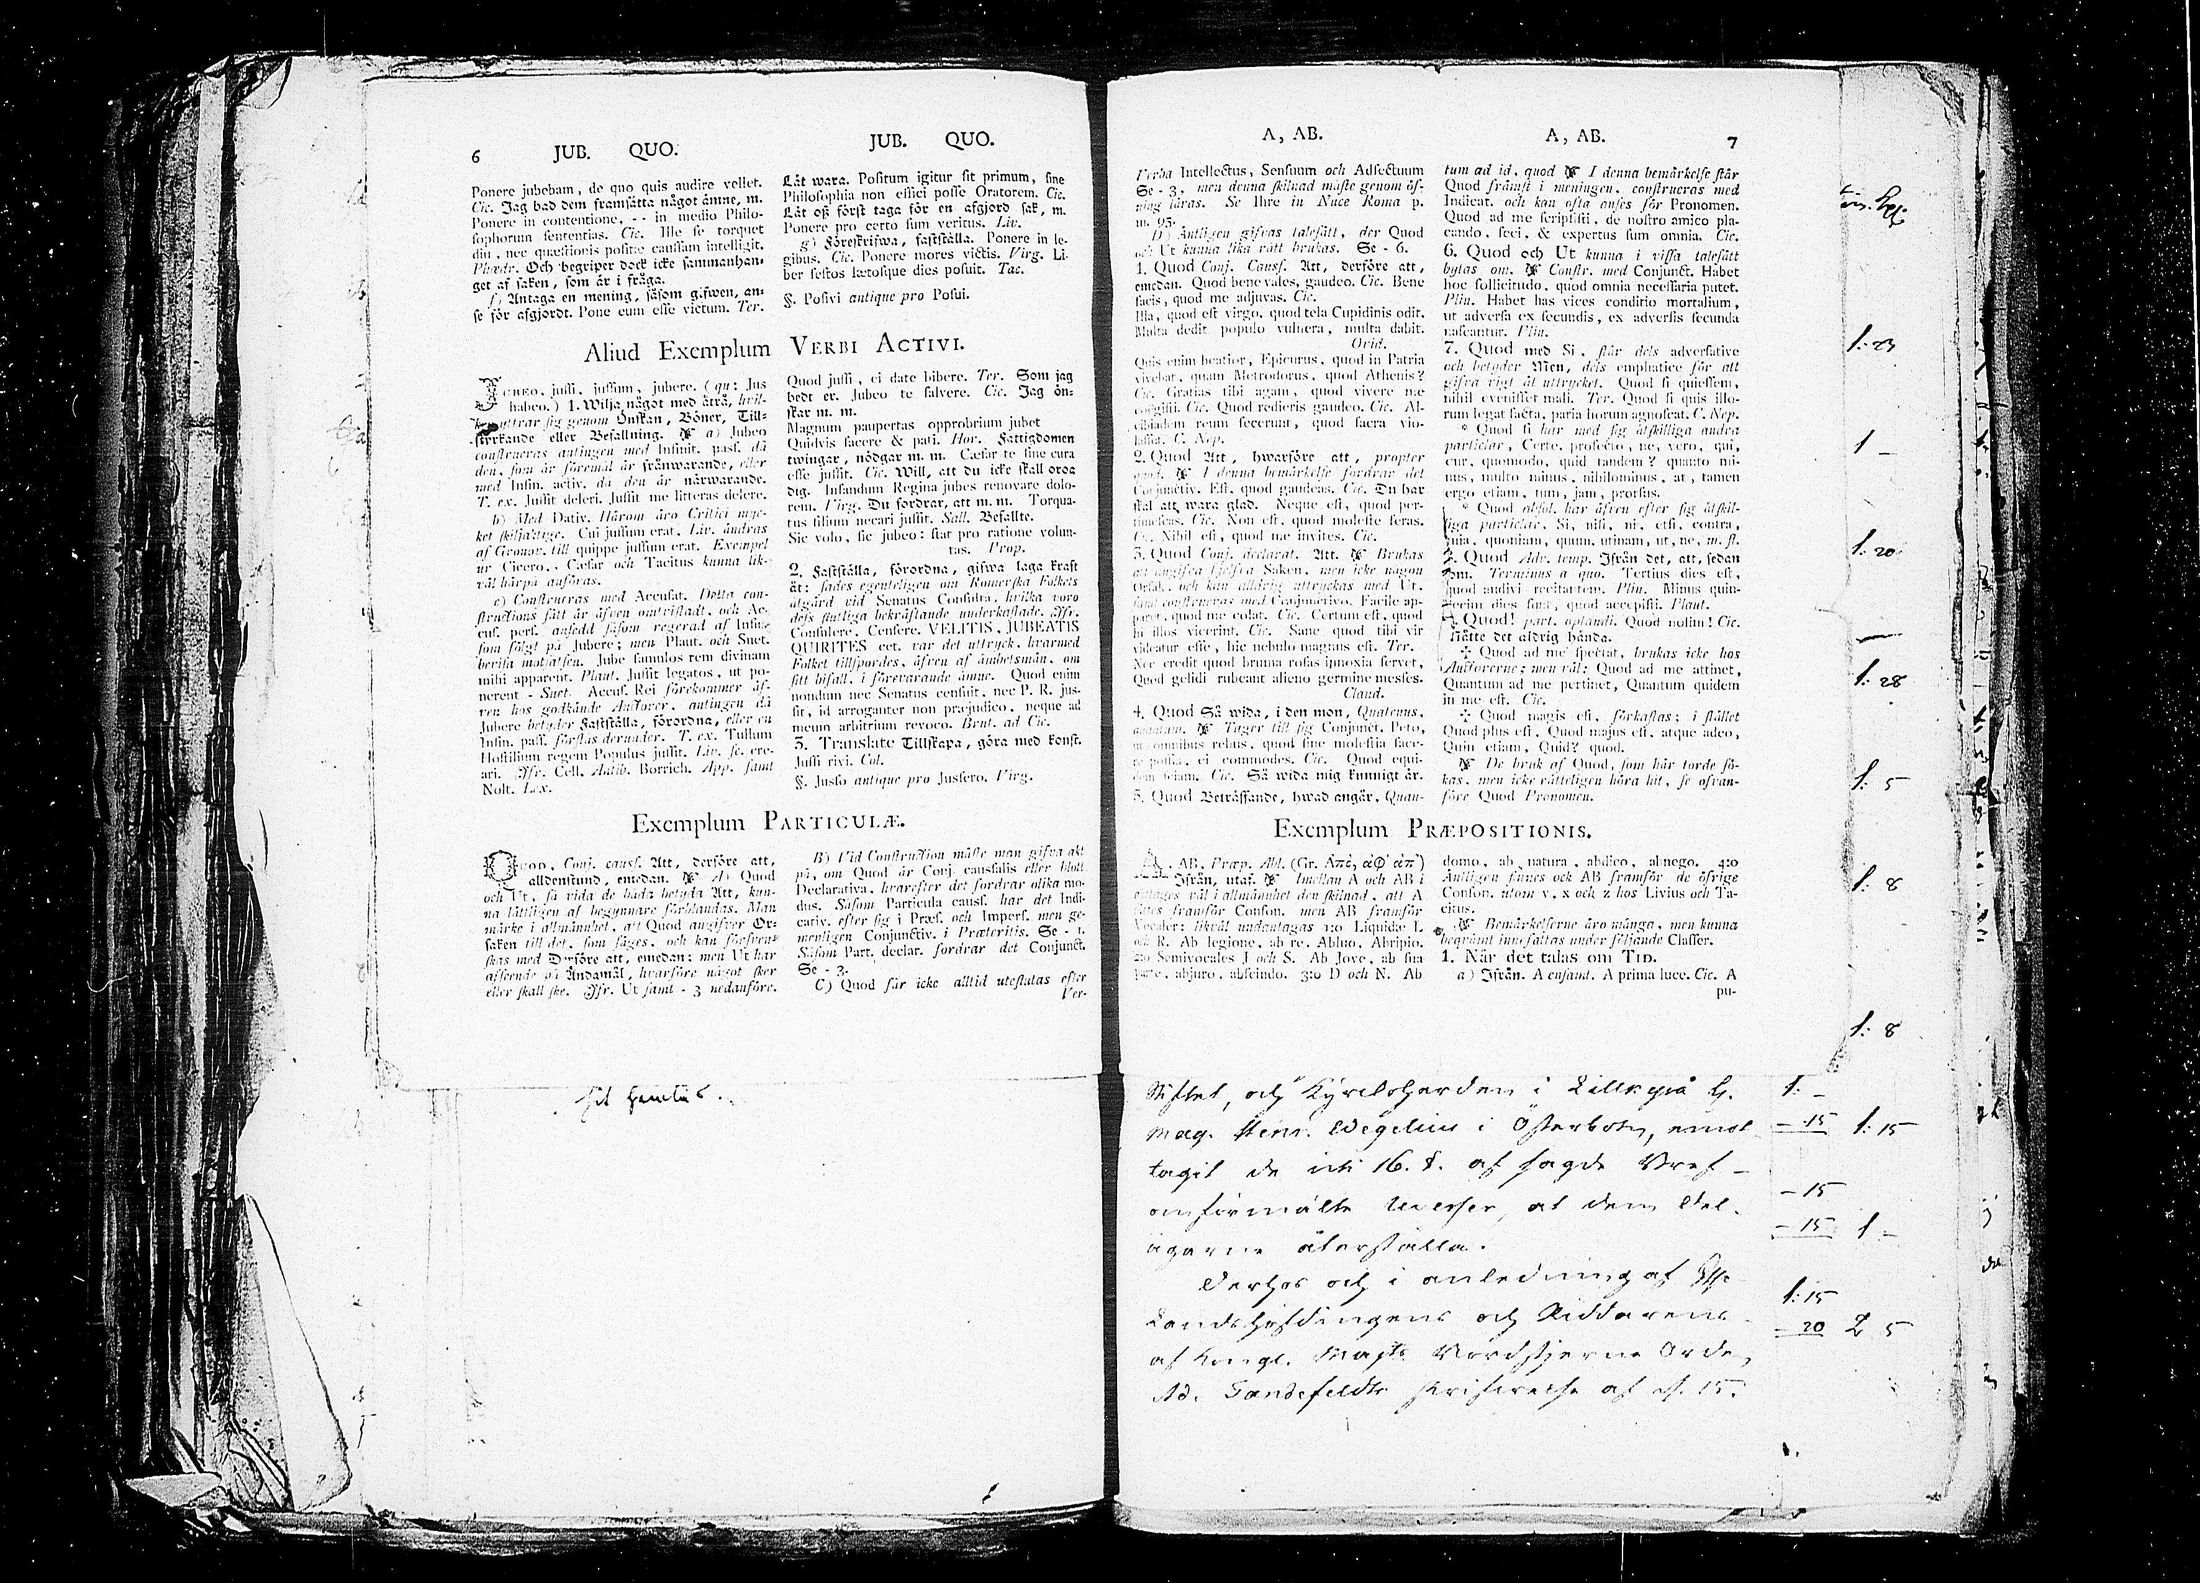 6 JUB. QUO.
JUB. QUO.
Ponere jubebam, de quo quis audire vellet.
Cic. Jag bad dem framsätta något ämne, m.
Ponere in contentione, -- in medio Philo-
sophorum sententias. Cic. Ille se torquet
diu, nec quæstionis positæ caussam intelligit.
Phædr. Och begriper dock icke sammanhan-
get af saken, som är i fråga.
f) Antaga en mening, såsom gifwen, an-
se för afgjordt. Pone eum esse victum. Ter.
Låt wara. Positum igitur sit primum, sine
Philosophia non effici posse Oratorem. Cic.
Låt oß först taga för en afgjord sak, m.
Ponere pro certo sum veritus. Liv.
g) Föreskrifwa, fastställa. Ponere in le-
gibus. Cic. Ponere mores victis. Virg. Li-
ber festos lætosque dies posuit. Tac.
§. Posivi antique pro Posui.
Aliud Exemplum VERBI ACTIVI.
JUBEO, jussi, jussum, jubere. (qu: Jus
habeo.) 1. Wilja något med åtrå, hvil-
ken yttrar sig genom Önskan, Böner, Till-
styrkande eller Befallning. a) Jubeo
construeras antingen med Infinit. pass. då
den, som är föremål är frånwarande, eller
med Infin. activ. då den är närwarande.
T. ex. Jussit deleri. Jussit me litteras delere.
b) Med Dativ. Härom äro Critici myc-
ket skiljaktige. Cui jussum erat. Liv. ändras
af Gronov. till quippe jussum erat. Exempel
ur Cicero, Cæsar och Tacitus kunna lik-
väl härpå anföras.
c) Construeras med Accusat. Detta con-
structions sätt är äfven omtvistadt, och Ac-
cus. pers. ansedd såsom regerad af Infin.
som följt på Jubere; men Plaut. och Suet.
berisa motsatsen. Jube famulos rem divinam
mihi apparent. Plaut. Jussit legatos, ut po-
nerent - Suet. Accus. Rei förekommer äf-
ven hos godkände Auctorer, antingen då
Jubere betyder Fastställa, förordna, eller en
Infin. pass. förstås derunder. T. ex. Tullum
Hostilium regem Populus jussit. Liv. sc. cre-
ari. Jfr. Cell. Antib. Borrich. App. samt
Nolt. Lex.
Quod jussi, ei date bibere. Ter. Som jag
bedt er. Jubeo te salvere. Cic. Jag ön-
skar m. m.
Magnum paupertas opprobrium jubet
Quidvis facere & pati. Hor. Fattigdomen
twingar, nödgar m. m. Cæsar te sine cura
esse jussit. Cic. Will, att du icke skall oroa
dig. Infandum Regina jubes renovare dolo-
rem. Virg. Du fordrar, att m. m. Torqua-
tus filium necari jussit. Sall. Befallte.
Sic volo, sic jubeo: stat pro ratione volun-
tas. Prop.
2. Fastställa, förordna, gifwa laga kraft
åt: sades egenteligen om Romerska Folkets
åtgärd vid Senatus Consulta, hvilka voro
dess slutliga bekräftande underkastade. Jfr.
Consulere, Censere. VELITIS, JUBEATIS
QUIRITES cet. var det uttryck, hvarmed
Folket tillspordes, äfven af ämbetsmän, om
sitt bifall, i förevarande ämne. Quod enim
nondum nec Senatus censuit, nec P. R. jus-
sit, id arroganter non præjudico, neque ad
meum arbitrium revoco. Brut. ad Cic.
3. Translate Tillskapa, göra med konst.
Jussi rivi. Col.
§. Jusso antique pro Jussero. Virg.
Exemplum PARTICULÆ.
QUOD, Conj. causs. Att, derföre att,
alldenstund, emedan. A) Quod
och Ut, så vida de båda betyda Att, kun-
na lätteligen af begynnare förblandas. Man
märke i allmänhet, att Quod angifver Or-
saken till det, som säges, och kan försvens-
kas med Derföre att, emedan: men Ut har
afseende på Ändamål, hvarföre något sker
eller skall ske. Jfr. Ut samt - 3 nedanföre.
B) Vid Construction måste man gifva akt
på, om Quod är Conj. causalis eller blott
Declarativa, hvarefter det fordrar olika mo-
dus. Såsom Particula causs. har det Indi-
cativ. efter sig i Præs. och Imperf. men ge-
menligen Conjunctiv. i Præteritis. Se - 1.
Såsom Part. declar. fordrar det Conjunct.
Se - 3.
C) Quod får icke alltid uteslutas efter
Ver-
A, AB.
A, AB. 7
Verba Intellectus, Sensuum och Adfectuum
Se - 3. men denna skilnad måste genom öf-
ning läras. Se Ihre in Nuce Roma p.
m. 93.
D) Äntligen gifvas talesätt, der Quod
och Ut kunna lika rätt brukas. Se - 6.
1. Quod Conj. Causs. Att, derföre att,
emedan. Quod bene vales, gaudeo. Cic. Bene
facis, quod me adjuvas. Cic.
Illa, quod est virgo, quod tela Cupidinis odit.
Multa dedit populo vulnera, multa dabit.
Ovid.
Quis enim beatior, Epicurus, quod in Patria
vivebat, quam Metrodorus, quod Athenis?
Cic. Gratias tibi agam, quod vivere me
coëgisti. Cic. Quod redieris gaudeo. Cic. Al-
cibiadem reum fecerunt, quod sacra vio-
lasset. C. Nep.
2. Quod Att, hwarföre att, propter
quod. I denna bemärkelse fordrar det
Conjunctiv. Est, quod gaudeas. Cic. Du har
skäl att wara glad. Neque est, quod per-
timescas. Cic. Non est, quod moleste feras.
Cic. Nihil est, quod me invites. Cic.
3. Quod Conj. declarat. Att. Brukas
att angifva sjelfva Saken, men icke någon
Orsak, och kan alldrig uttryckas med Ut,
samt construeras med Conjunctivo. Facile ap-
paret, quod me colat. Cic. Certum est, quod
hi illos vicerint. Cic. Sane quod tibi vir
videatur esse, hic nebulo magnus est. Ter.
Nec credit quod bruma rosas innoxia servet,
Quod gelidi rubeant alieno germine messes.
Claud.
4. Quod Så wida, i den mon, Quatenus,
quantum. Tager till sig Conjunct. Peto,
in omnibus rebus, quod sine molestia face-
re possis, ei commodes. Cic. Quod equi-
dem sciam. Cic. Så wida mig kunnigt är.
5. Quod Beträffande, hwad angår, Quan-
tum ad id, quod I denna bemärkelse står
Quod främst i meningen, construeras med
Indicat. och kan ofta anses för Pronomen.
Quod ad me scripsisti, de nostro amico pla-
cando, feci, & expertus sum omnia. Cic.
6. Quod och Ut kunna i vissa talesätt
bytas om. Constr. med Conjunct. Habet
hoc sollicitudo, quod omnia necessaria putet.
Plin. Habet has vices conditio mortalium,
ut adversa ex secundis, ex adversis secunda
nascantur. Plin.
7. Quod med Si, står dels adversative
och betyder Men, dels emphatice för att
gifva vigt åt uttrycket. Quod si quiessem,
nihil evenisset mali. Ter. Quod si quis illo-
rum legat facta, paria horum agnoscat. C. Nep.
* Quod si har med sig åtskilliga andra
particlar, Certe, profecto, ne, vero, qui,
cur, quomodo, quid tandem? quanto mi-
nus, multo minus, nihilominus, at, tamen
ergo etiam, tum, jam, prorsus.
* Quod obsol. har äfven efter sig åtskil-
liga particlar, Si, nisi, ni, etsi, contra,
quia, quoniam, quum, utinam, ut, ne, m. fl.
Quod Adv. temp. Ifrån det, att, sedan
som. Terminus a quo. Tertius dies est,
quod audivi recitantem. Plin. Minus quin-
decim dies sunt, quod accepisti. Plaut.
Quod! part. optandi. Quod nolim! Cic.
Måtte det aldrig hända.
‡ Quod ad me spectat, brukas icke hos
Auctorerne; men väl: Quod ad me attinet,
Quantum ad me pertinet, Quantum quidem
in me est. Cic.
‡ Quod magis est, förkastas; i stället
Quod plus est, Quod majus est, atque adeo,
Quin etiam, Quid? quod.
De bruk af Quod, som här torde sö-
kas, men icke rätteligen höra hit, se ofvan-
före Quod Pronomen.
Exemplum PRÆPOSITIONIS.
A, AB, Præp. Abl. (Gr. Ἀπὸ, ἀφ' ἀπ')
Ifrån, utaf. Imellan A och AB i
akttages väl i allmänhet den skilnad, att A
sättes framför Conson. men AB framför
Vocaler: likväl undantagas 1:o Liquidæ L
och R. Ab legione, ab re. Abluo, Abripio.
2:o Semivocales J och S. Ab Jove, ab sua
parte, abjuro, abscindo. 3:o D och N. Ab
domo, ab natura, abdico, abnego. 4:o
Äntligen finnes ock AB framför de öfrige
Conson. utom v, x och z hos Livius och Ta-
citus.
Bemärkelserne äro många, men kunna
beqvämt innefattas under följande Classer.
1. När det talas om TID.
a) Ifrån. A ensamt. A prima luce. Cic. A
pu-
Stiftet, och Kyrckoherden i Lillkyrå H.
Mag. Henr. Wegelius i Österbotn, emot-
tagit de uti 16. §. af sagde Bref
omförmälte Uverser, at dem Del-
ägarne återställa.
Derhos och i anledning af
Landshöfdingens och Riddarens
af Kongl. Majts Nordstjerne Orden
Ad. Tandefeldts skrifvelse af d. 15.
1: 23
1 -
1: 20
1: 28
1: 5
1: 8
1: 8
1: -
- 15 1: 15
- 15
- 15 1 -
1: 15
- 20 2 5